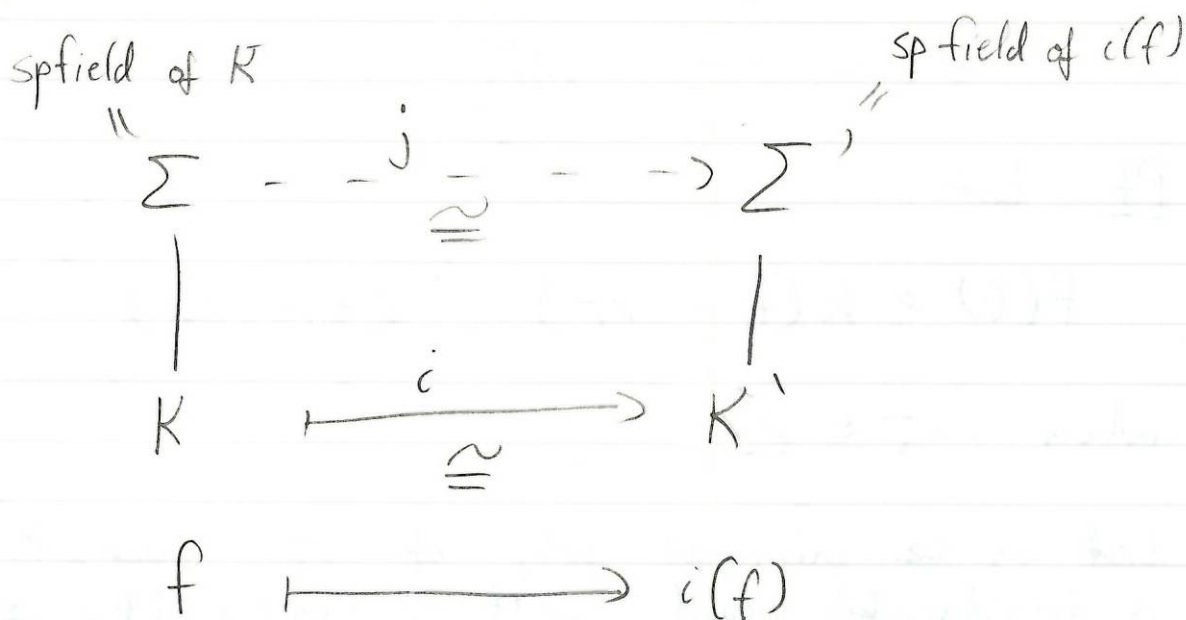 sp field of i(f)
spfield of K
" "
Σ - - j - - -> Σ'
≅
| |
K i K'
≅
f ↦ i(f)